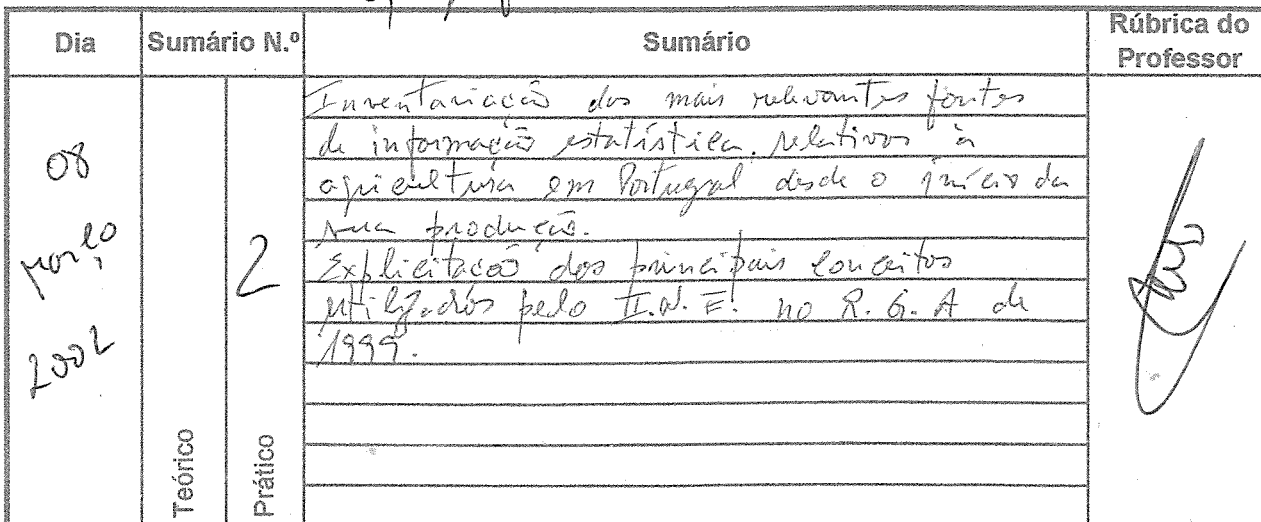 Dia Sumário N.º Sumário Rúbrica do Professor
08
Março
2002
Teórico
2
Prático
Inventariação das mais relevantes fontes
de informação estatística relativas à
agricultura em Portugal desde o início da
sua produção.
Explicitação dos principais conceitos
utilizados pelo I.N.E. no R.G.A de
1999.